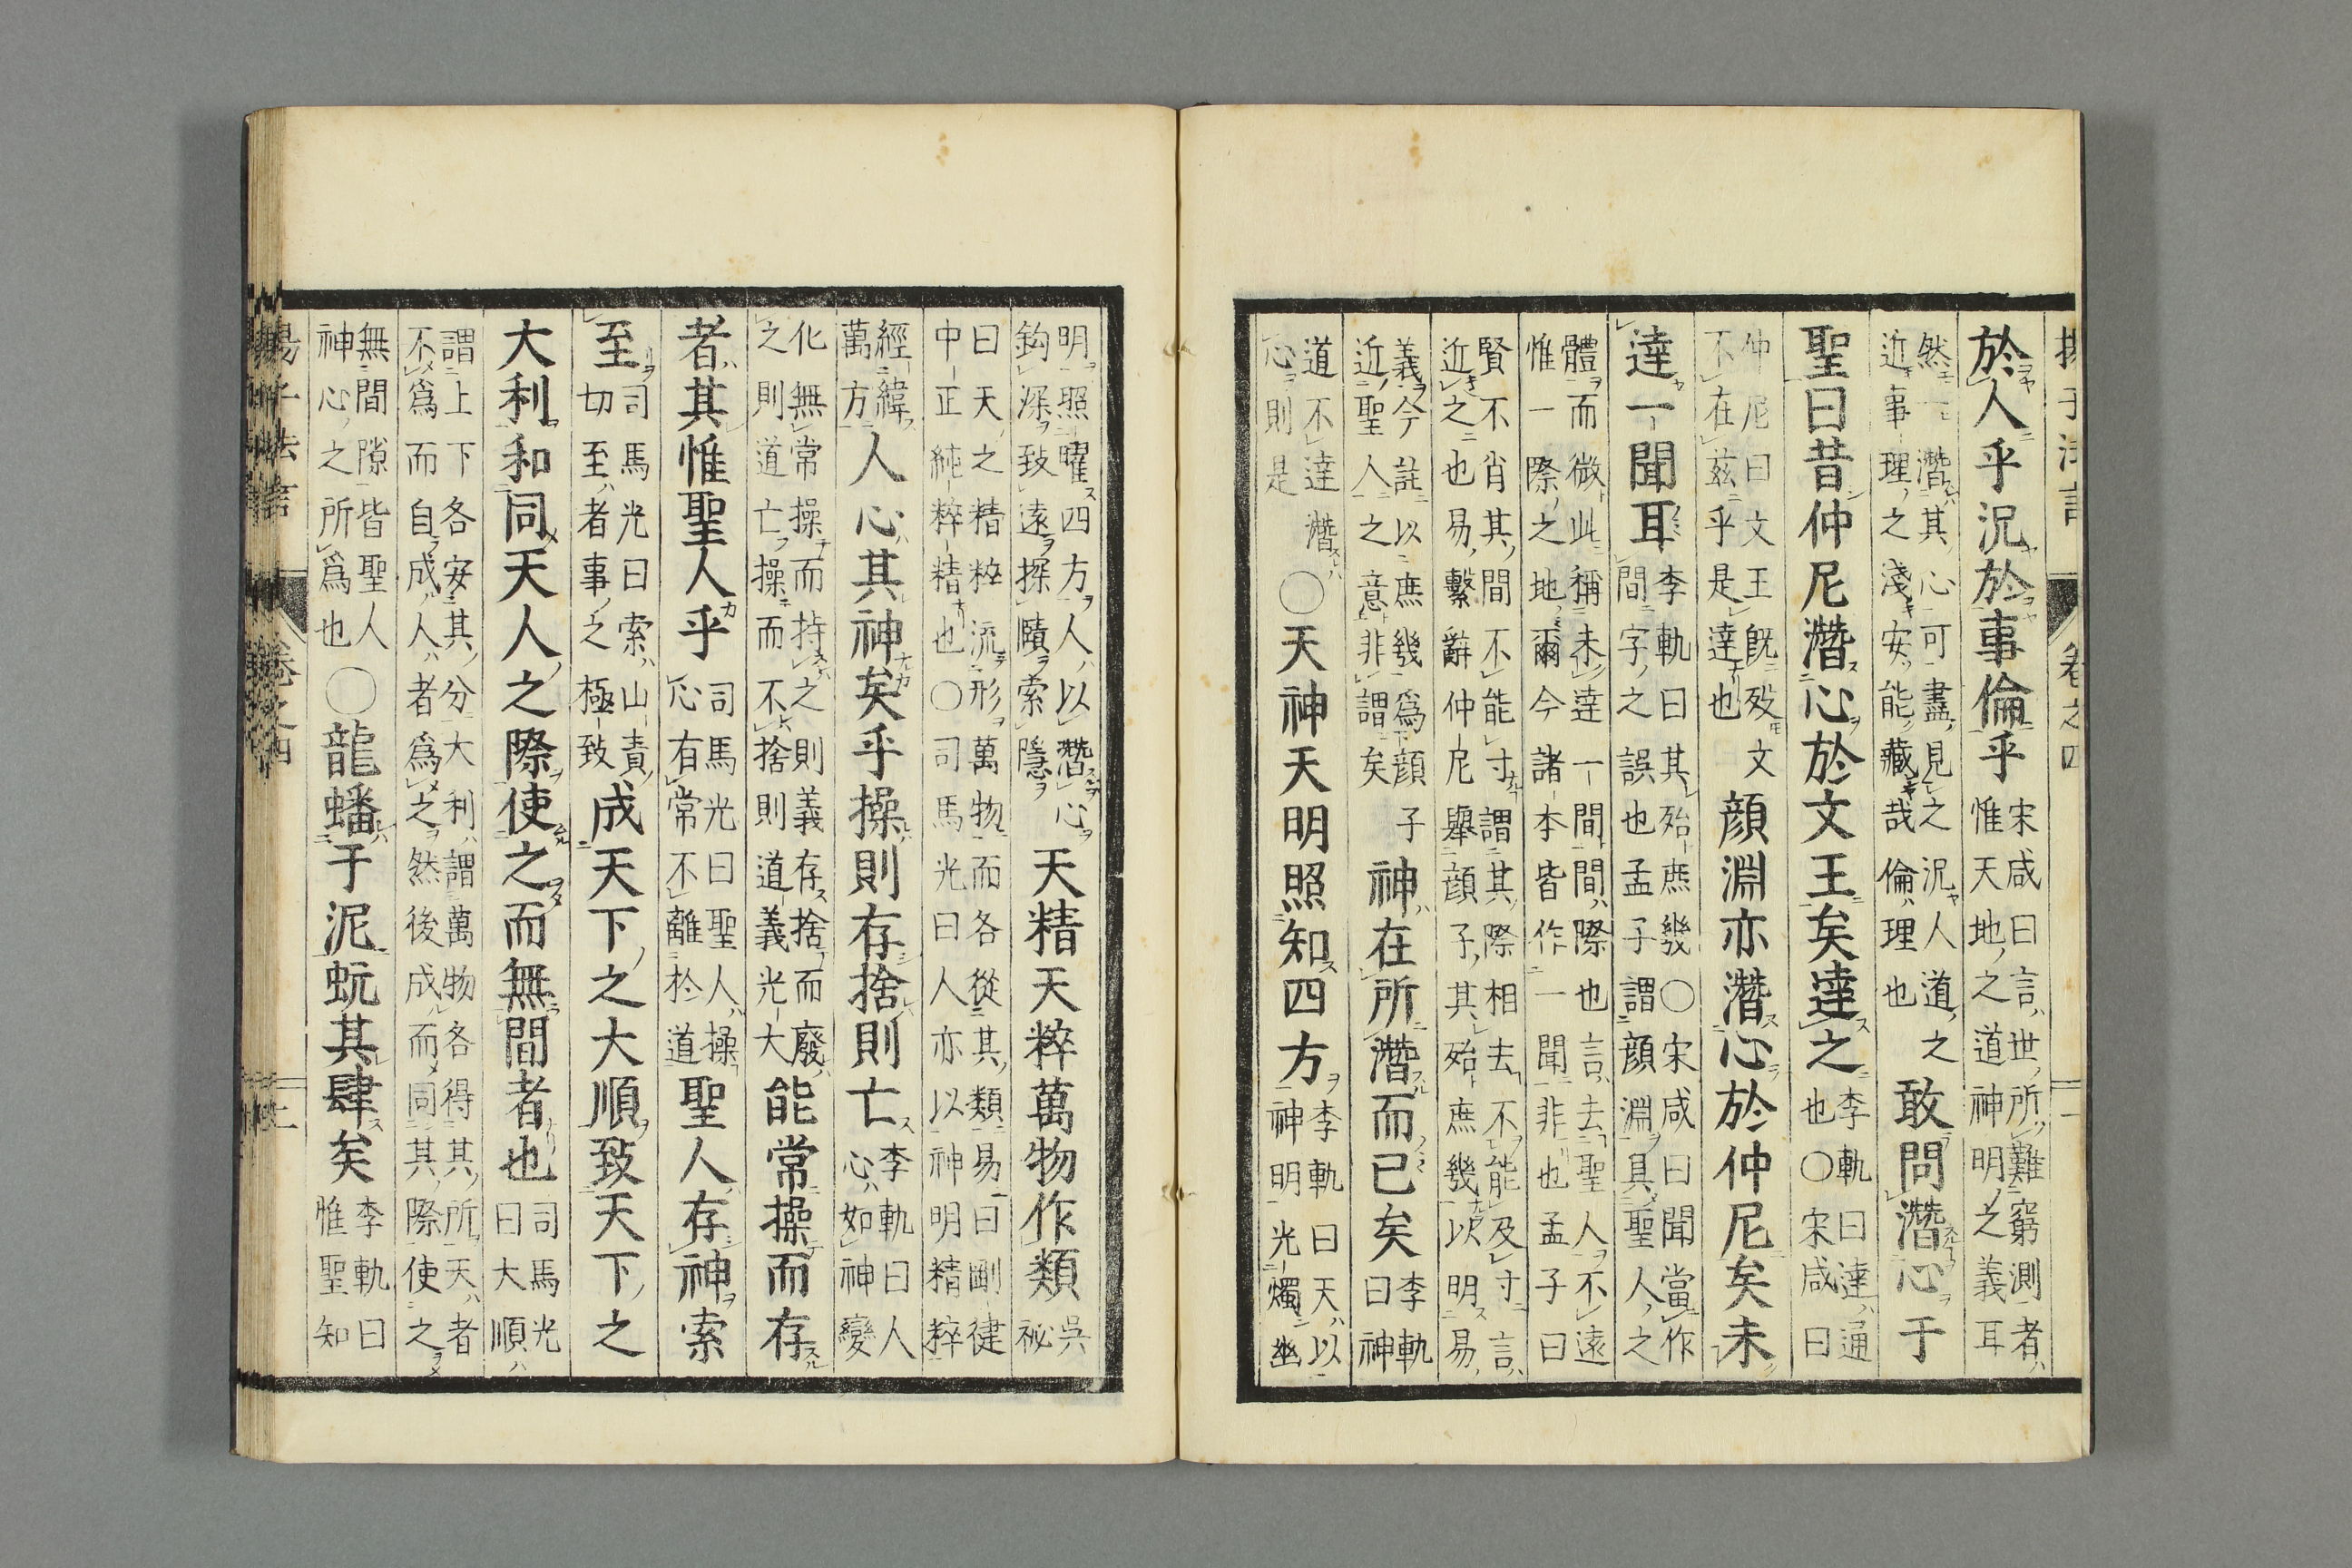 揚子法言 卷之四 一
於人乎況於事倫乎宋咸曰言世所難窮測者惟天地之道神明之義耳
然一潛其心可盡見之況人道之近事理之淺安能藏哉倫理也敢問潛心于
聖曰昔仲尼潛心於文王矣達之李軌曰達通也〇宋咸曰
仲尼曰文王既歿文不在茲乎是達也顏淵亦潛心於仲尼矣未
達一聞耳李軌曰其殆庶幾〇宋咸曰聞當作間字之誤也孟子謂顏淵具聖人之
體而微此稱未達一間間際也言去聖人不遠惟一際之地爾今諸本皆作一聞非也孟子曰
賢不肖其間不能寸謂其際相去不能及寸言近之也易繫辭仲尼舉顏子其殆庶幾以明易
義今註以庶幾爲顏子近聖人之意非謂矣神在所潛而已矣李軌曰神
道不達潛心則是〇天神天明照知四方李軌曰天以神明光燭幽
明照曜四方人以潛心鈎深致遠探賾索隱天精天粹萬物作類吳祕
曰天之精粹流形萬物而各從其類易曰剛健中正純粹精也〇司馬光曰人亦以神明精粹
經緯萬方人心其神矣乎操則存捨則亡李軌曰人心如神變
化無常操而持之則義存捨而廢之則道亡操而不捨則道義光大能常操而存
者其惟聖人乎司馬光曰聖人操心有常不離於道聖人存神索
至司馬光曰索山責切至者事之極致成天下之大順致天下之
大利和同天人之際使之而無間者也司馬光曰大順
謂上下各安其分大利謂萬物各得其所天者不爲而自成人者爲之然後成而同其際使之
無間隙皆聖人神心之所爲也〇龍蟠于泥蚖其肆矣李軌曰惟聖知
揚子法言 卷之四 二